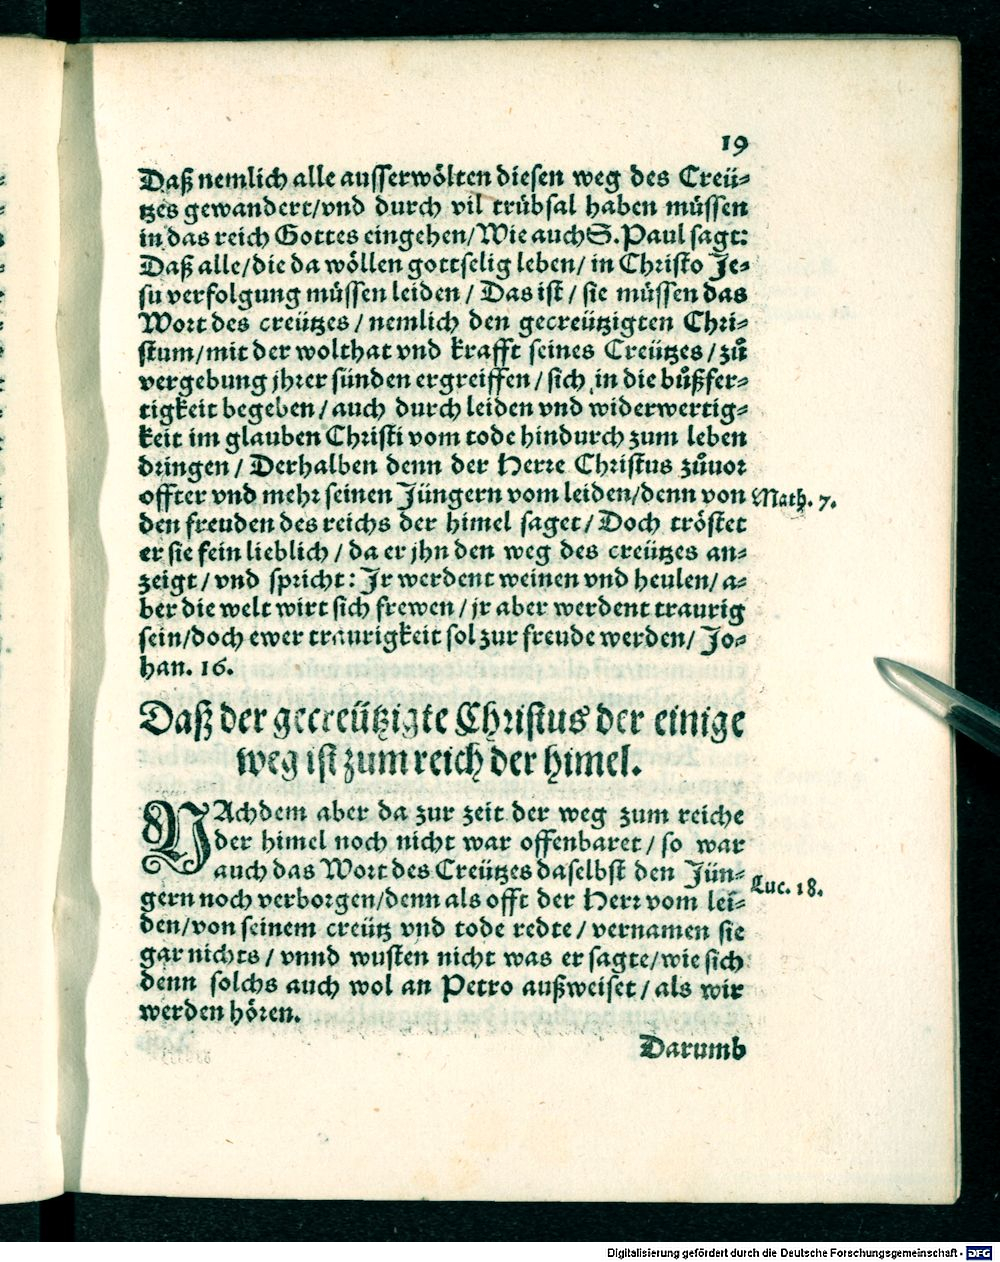 19
Daß nemlich alle ausserwölten diesen weg des Creü-
tzes gewandert/vnd durch vil trübsal haben müssen
in das reich Gottes eingehen/Wie auch S. Paul sagt:
Daß alle/die da wöllen gottselig leben/ in Christo Je-
su verfolgung müssen leiden / Das ist / sie müssen das
Wort des creützes / nemlich den gecreützigten Chri-
stum/mit der wolthat vnd krafft seines Creützes / zů
vergebung jhrer sünden ergreiffen / sich in die bůßfer-
tigkeit begeben / auch durch leiden vnd widerwertig-
keit im glauben Christi vom tode hindurch zum leben
dringen / Derhalben denn der Herre Christus zůuor
offter vnd mehr seinen Jüngern vom leiden/denn von
Math. 7.
den freuden des reichs der himel saget / Doch tröstet
er sie fein lieblich / da er jhn den weg des creützes an-
zeigt / vnd spricht: Jr werdent weinen vnd heulen/ a-
ber die welt wirt sich frewen / jr aber werdent traurig
sein/doch ewer traurigkeit sol zur freude werden/ Jo-
han. 16.
Daß der gecreützigte Christus der einige
weg ist zum reich der himel.
NAchdem aber da zur zeit der weg zum reiche
der himel noch nicht war offenbaret / so war
auch das Wort des Creützes daselbst den Jün-
Luc. 18.
gern noch verborgen/denn als offt der Herr vom lei-
den/von seinem creütz vnd tode redte / vernamen sie
gar nichts / vnnd wusten nicht was er sagte/wie sich
denn solchs auch wol an Petro außweiset / als wir
werden hören.
Darumb
Digitalisierung gefördert durch die Deutsche Forschungsgemeinschaft - DFG